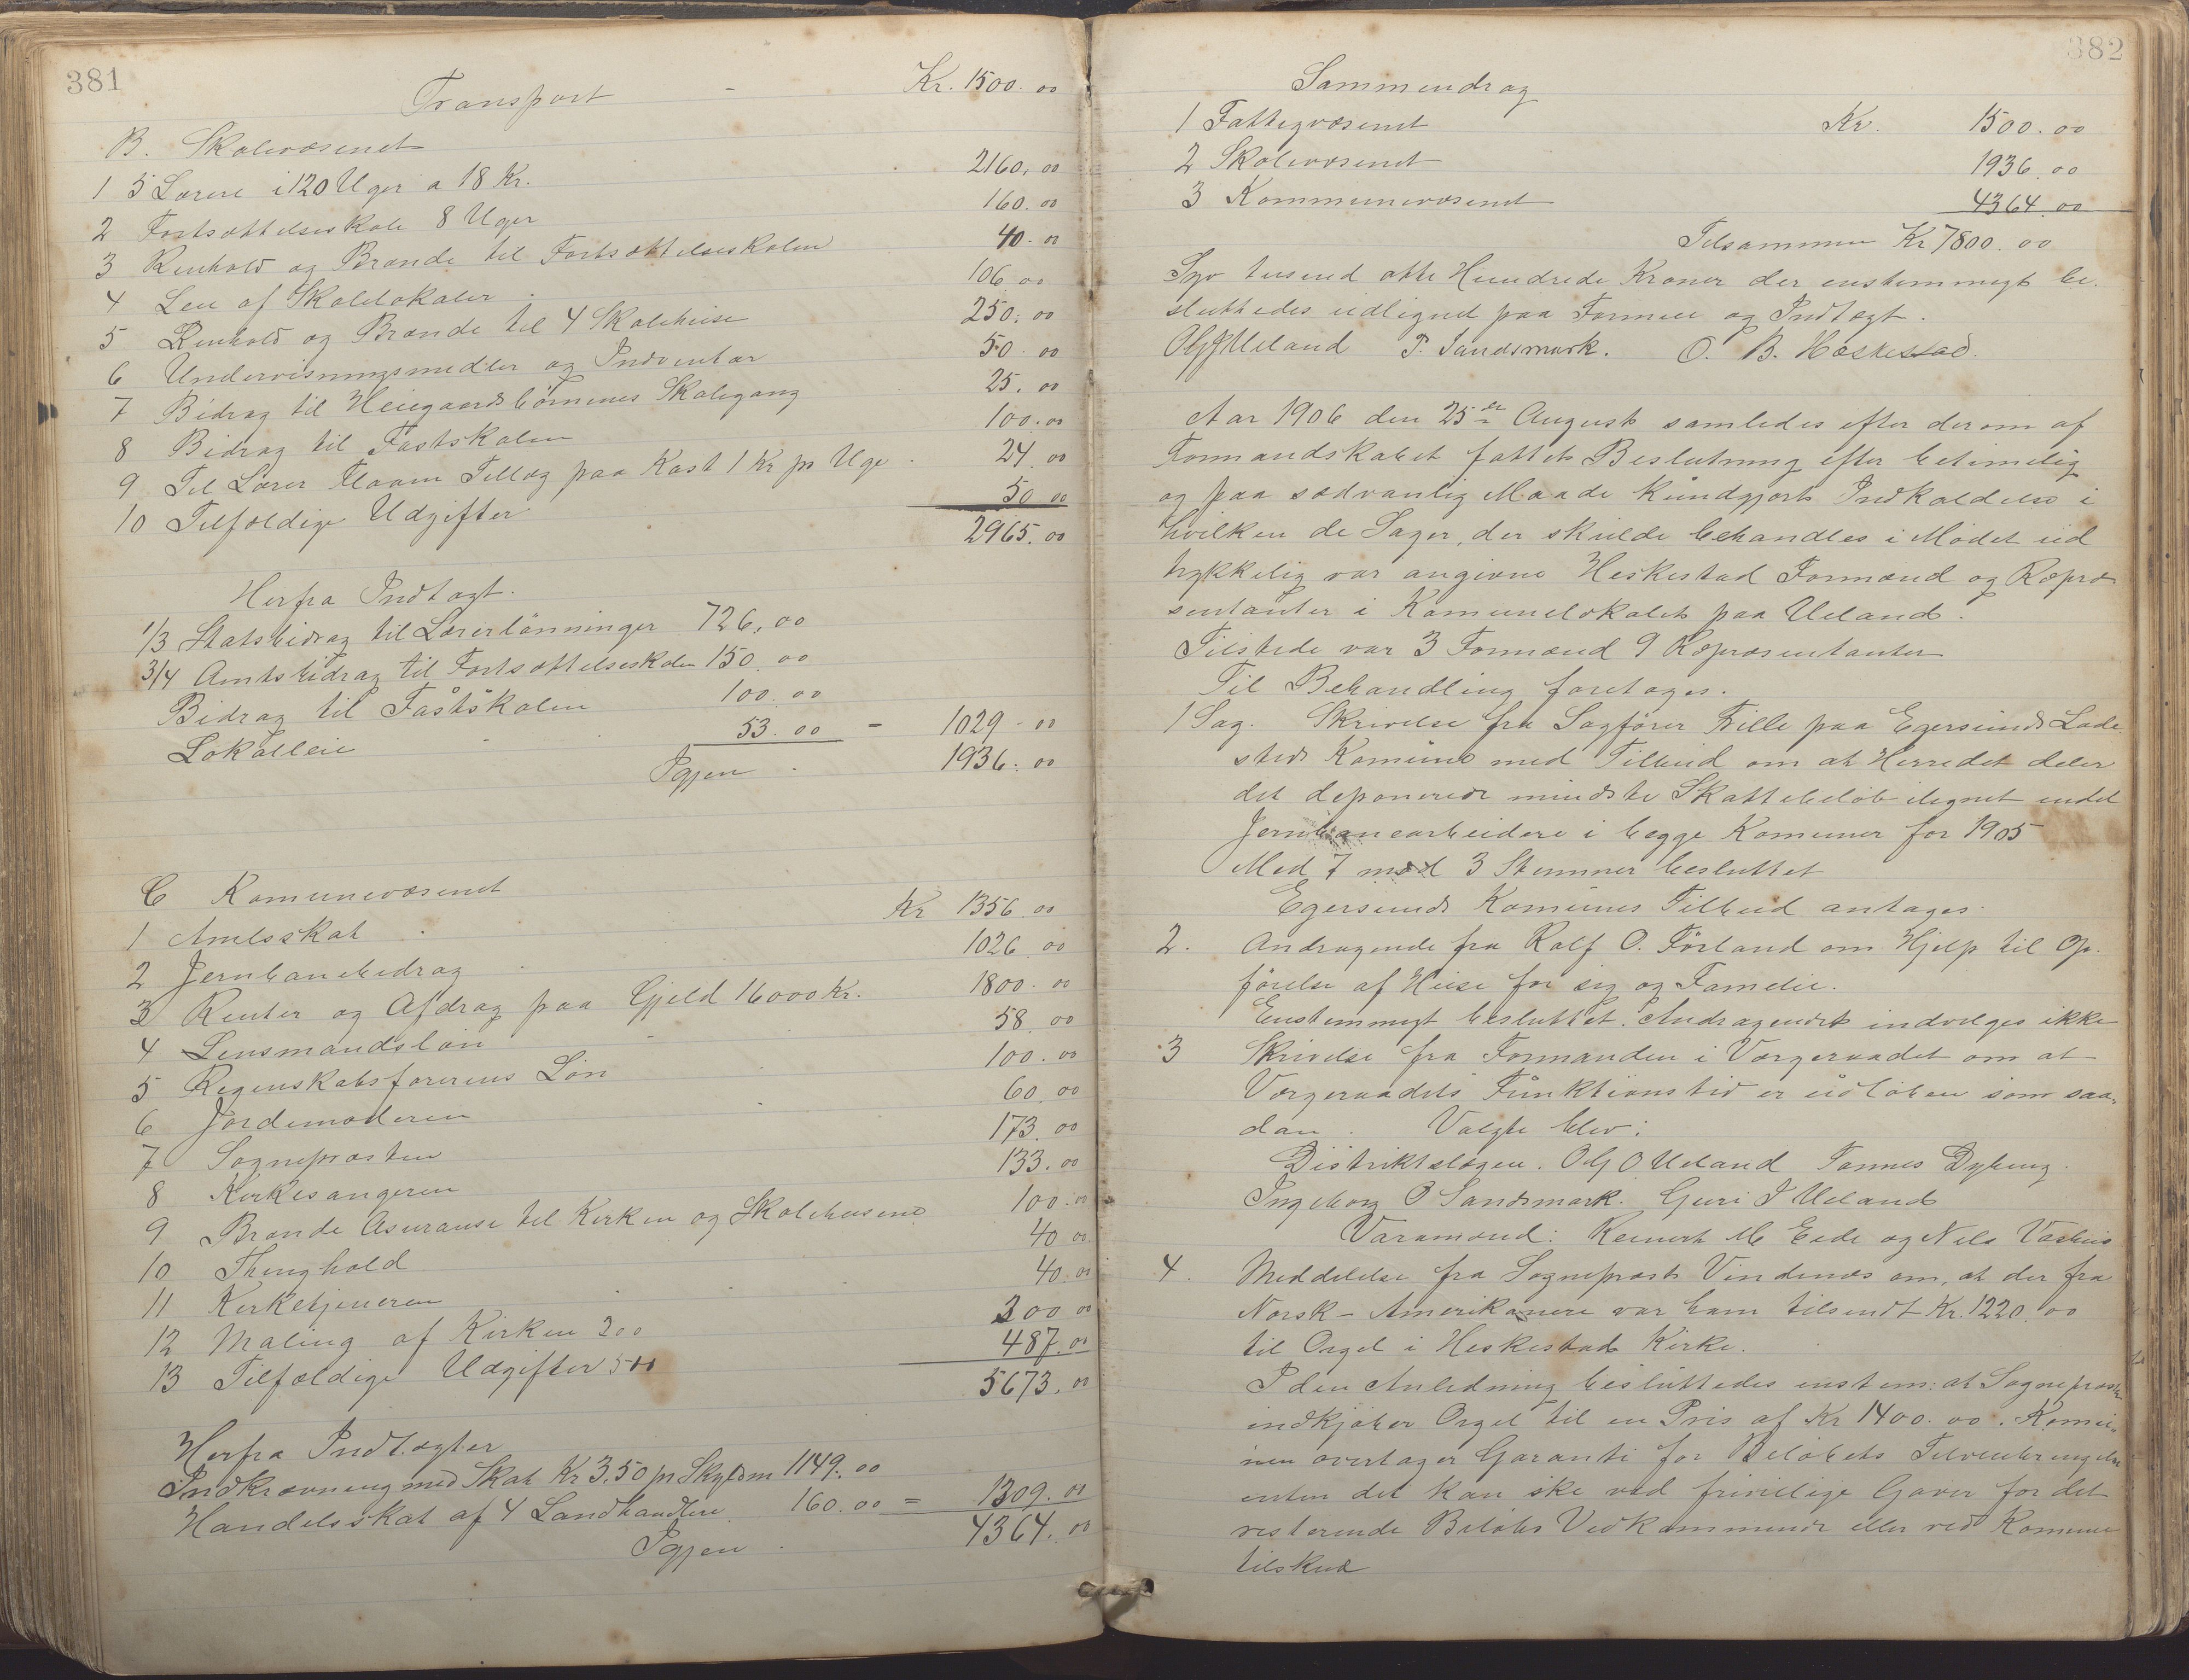 381
Transport - Kr. 1500.00
B. Skolevæsenet
1 5 Lærere i 120 Uger a 18 Kr. 2160.00
2 Fortsættelseskole 8 Uger 160.00
3 Renhold og Brænde til Fortsættelseskolen 40.00
4 Leie af Skolelokaler 106.00
5 Renhold og Brænde til 4 Skolehuse 250.00
6 Undervisningsmedler og Indventar 50.00
7 Bidrag til Heiegaardsbörnenes Skolegang 25.00
8 Bidrag til Fastskolen 100.00
9 Til Lærer Tillæg paa Kost 1 Kr pr Uge 24.00
10 Tilfældige Udgifter 50.00
2965.00
Herfra Indtægt.
1/3 Statsbidrag til Lærerlönninger 726.00
3/4 Amtsbidrag til Fortsættelseskolen 150.00
Bidrag til Fastskolen 100.00
Lokalleie 53.00 - 1029.00
Igjen 1936.00
C Komunevæsenet
1 Amtsskat Kr 1356.00
2 Jernbanebidrag 1026.00
3 Renter og Afdrag paa Gjeld 16000 Kr. 1800.00
4 Lensmandslön 58.00
5 Regenskabsförerens Lön 100.00
6 Jordemoderen 60.00
7 Sognepræsten 173.00
8 Kirkesangeren 133.00
9 Brande Asuranse til Kirken og Skolehusene 100.00
10 Thinghold 40.00
11 Kirketjeneren 40.00
12 Maling af Kirken 300 300.00
13 Tilfældige Udgifter 500 487.00
5673.00
Herfra Indtægter
Indkrævning med Skat Kr 3.50 pr Skyldm 1149.00
Handelsskat af 4 Landhandlere 160.00 = 1309.00
Igjen 4364.00
382
Sammendrag
1 Fattigvæsenet Kr. 1500.00
2 Skolevæsenet 1936.00
3 Kommunevæsenet 4364.00
Tilsammen Kr 7800.00
Syv tusend otte Hundrede Kroner der enstemmigt be-
sluttedes udlignet paa Formue og Indtægt.
Olf J Ueland P. Sandsmark. O. B. Hæskestad.
Aar 1906 den 25de August samledes efter derom af
Formandskabet fattets Beslutning efter betimelig
og paa sædvanlig Maade kundgjort Indkaldelse i
hvilken de Sager, der skulde behandles i Mödet ud
trykkelig var angivne Heskestad Formænd og Repræ
sentanter i Komunelokalet paa Ueland.
Tilstede var 3 Formænd 9 Repræsentanter
Til Behandling foretoges.
1 Sag. Skrivelse fra Sagförer Tille paa Egersunds Lade
steds Komune med Tilbud om at Herredet deler
det deponerede mindste Skattebelöb ilignet endel
Jernbanearbeidere i begge Komuner for 1905
Med 7 mod 3 Stemmer besluttet
Egersunds Komunes Tilbud antages.
2. Andragende fra Rolf O. Förland om Hjelp til Op-
förelse af Huse for sig og Familie.
Enstemmigt besluttet. Andragendet indvelges ikke
3 Skrivelse fra Formanden i Værgeraadet om at
Værgeraadets Funktionstid er udlöben som saa-
dan. Valgte blev:
Distriktslægen. Olf O Ueland Tonnes Dybing.
Ingeborg O Sandsmark. Guri J Ueland
Varamænd: Reinert M Eide og Nils Vashus
4. Meddelelse fra Sognepræst Vindenæs om, at der fra
Norsk-Amerikanere var ham tilsendt Kr. 1220.00
til Orgel i Heskestad Kirke.
I den Anledning besluttedes enstem: at Sognepræsten
indkjöber Orgel til en Pris af Kr 1400.00. Komu-
nen overtager Garanti for Belöbets Tilveiebringelse
enten det kan ske ved frivillige Gaver for det
resterende Belöbs Vedkommende eller ved Komune
tilskud